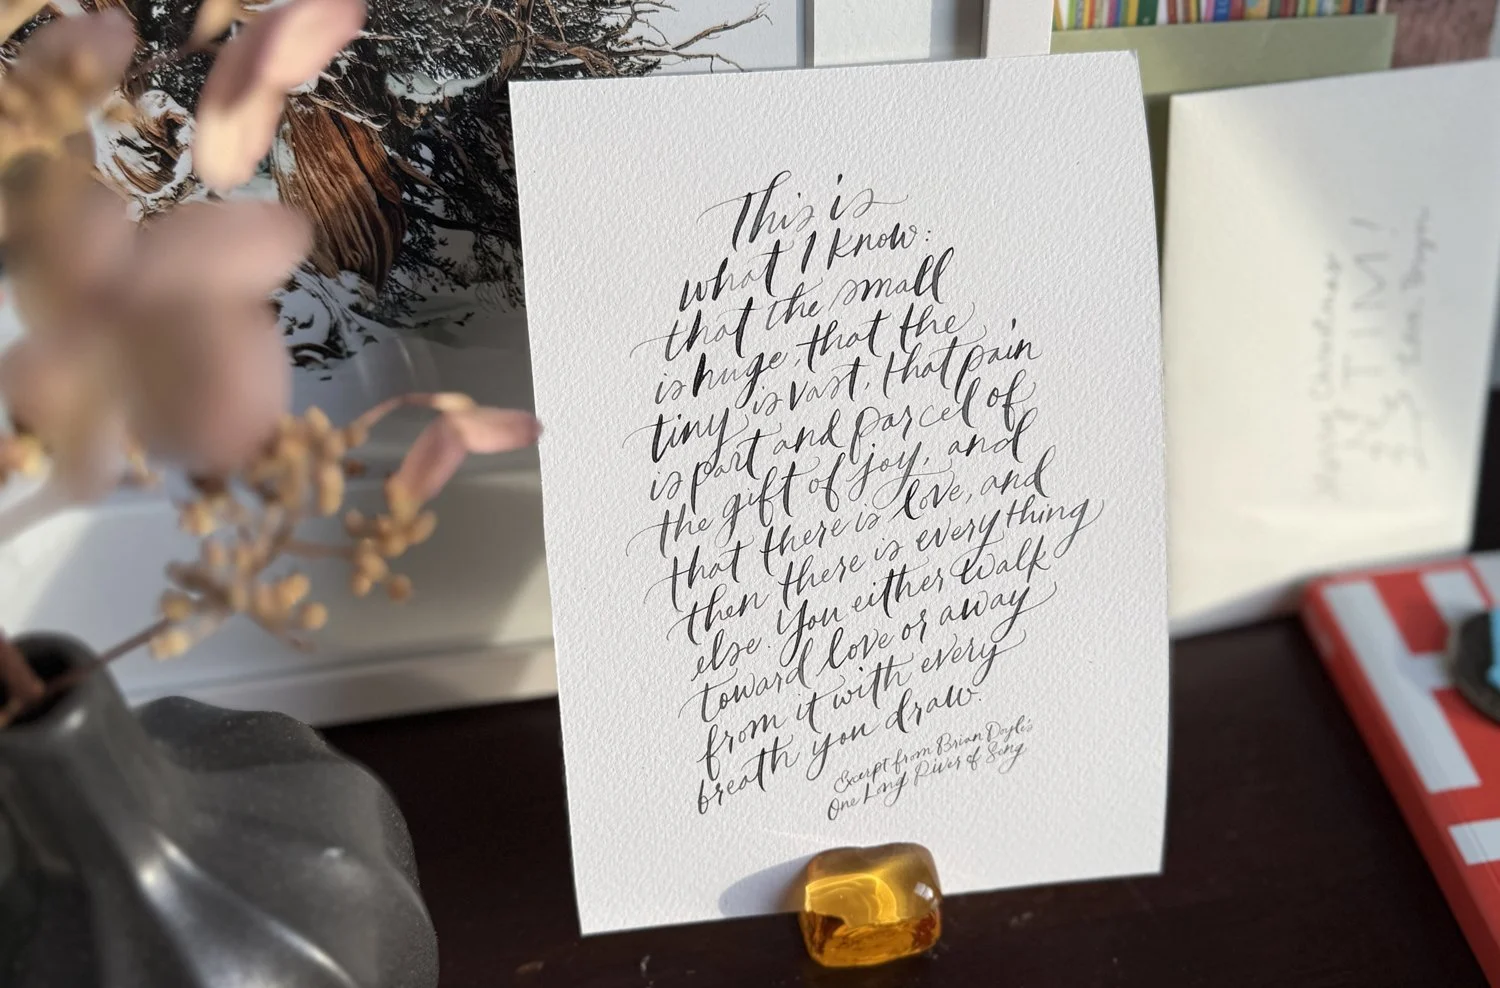 This is
what I know:
that the small
is huge, that the
tiny is vast, that pain
is part and parcel of
the gift of joy, and
that there is love, and
then there is everything
else. You either walk
toward love or away
from it with every
breath you draw.
Excerpt from Brian Doyle's
One Long River of Song